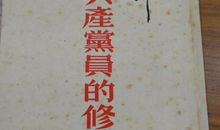 共產黨員的修